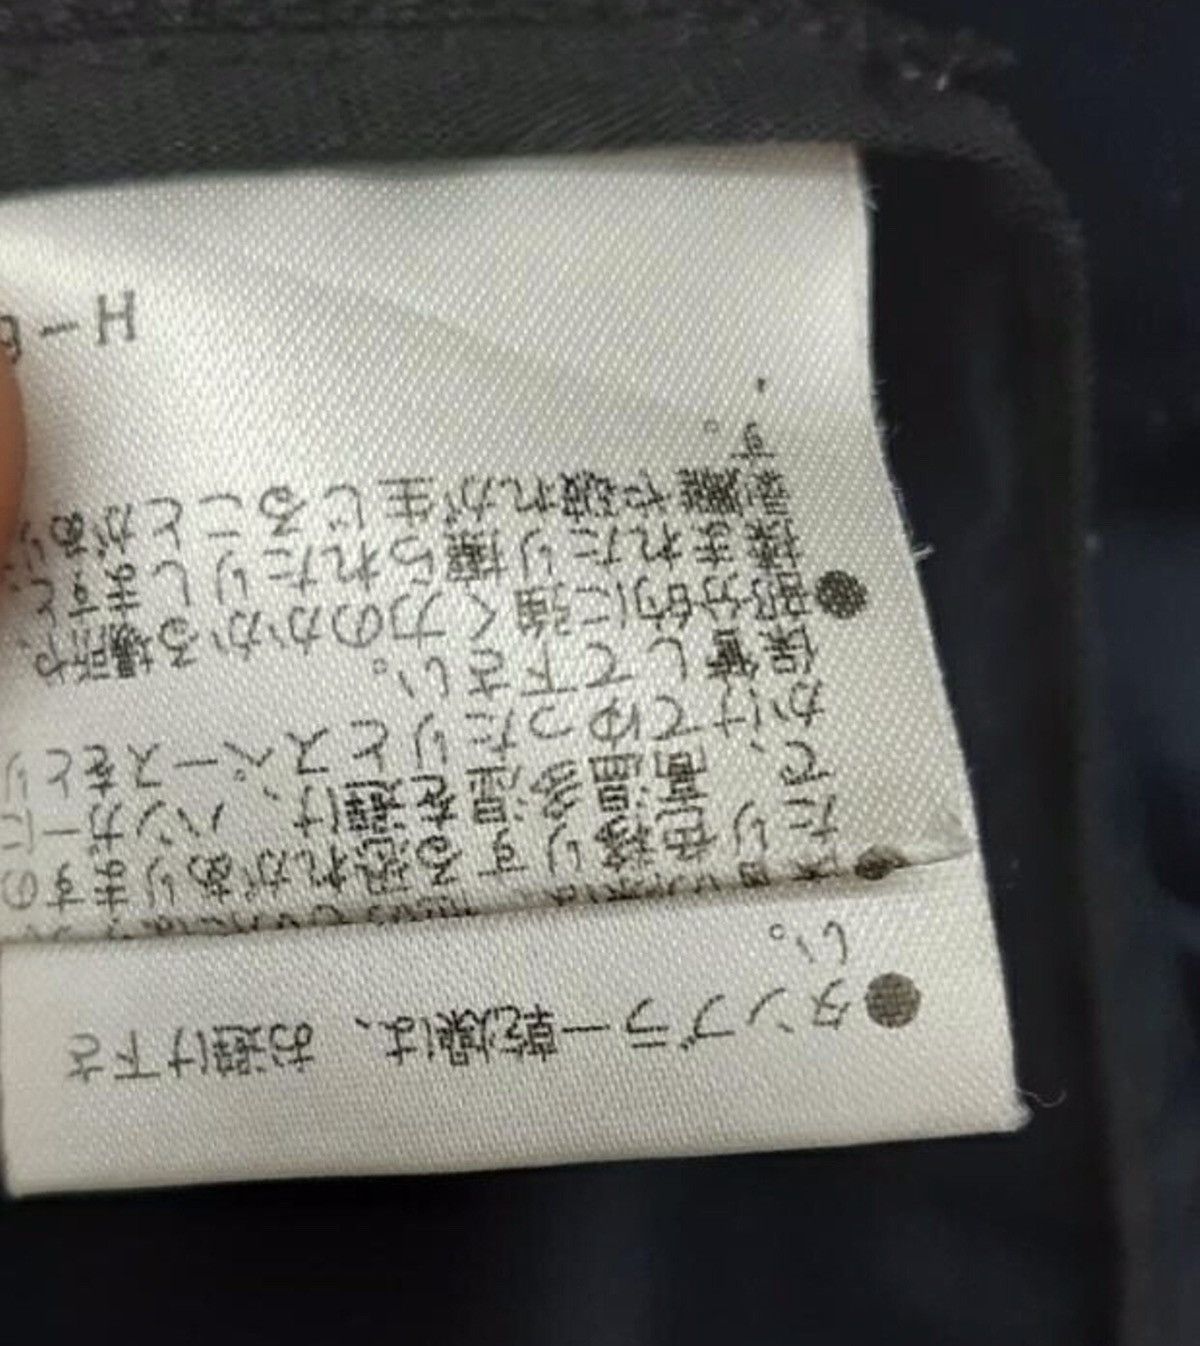 ●タンブラー乾燥は、お避け下さ
い。
たり色移りする恐れがありますの
で、高温多湿を避け、ハンガーに
かけてゆったりとスペースをとり
保管して下さい。
●部分的に強く力のかかる場所や
揉まれたり擦られたりしますと、
剥離や破れが生じることがあり
す。
H-